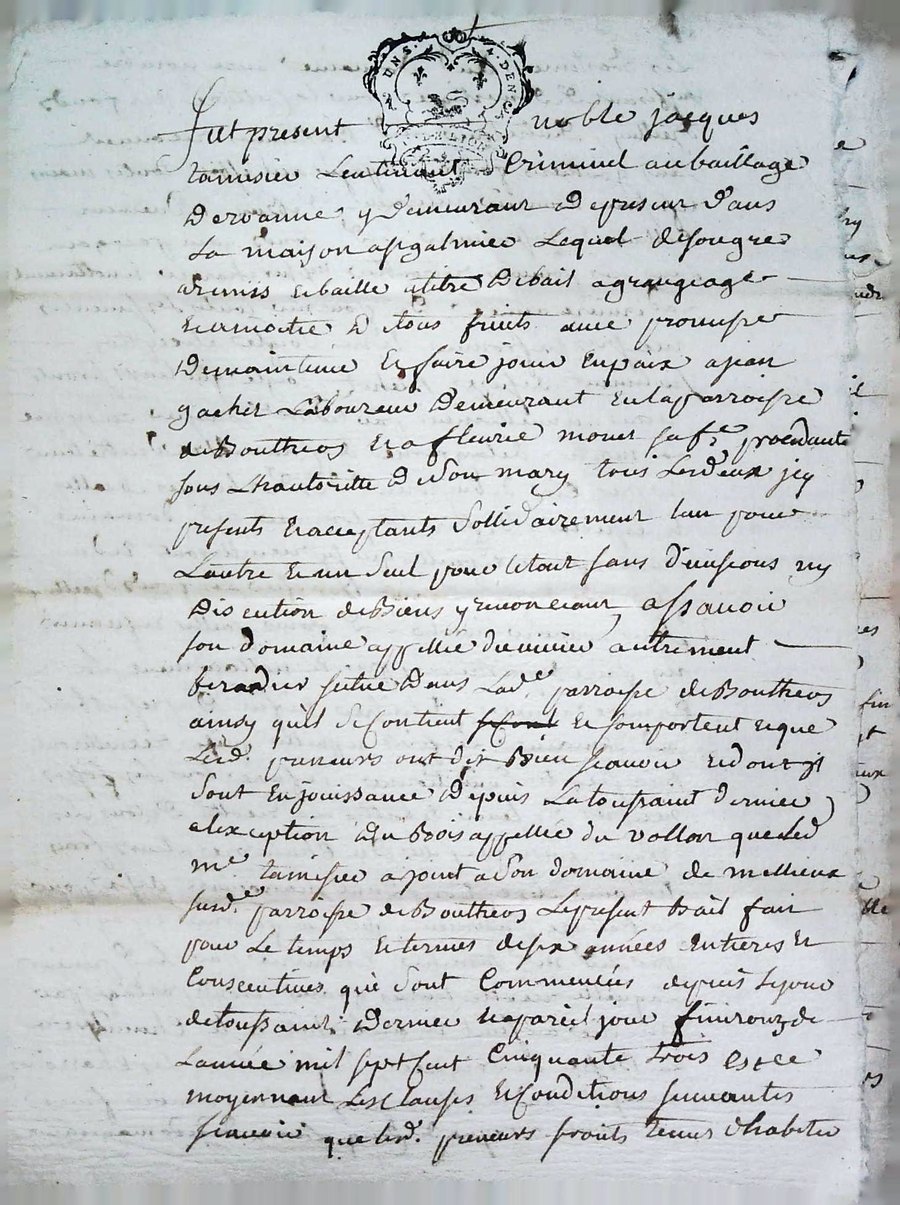 UN S. 4. DEN. G.
LION
Fut present noble jacques
tamisier Lieutenant Criminel au bailliage
De roanne y Demeurant De present Dans
La maison a sgalmier Lequel de son gre
a remis et baille a titre De bail a grangeage
et a moitie De tous fruits avec promesse
De maintenir et faire jouir en paix a jean
gachet Laboureur Demeurant en la parroisse
de Boutheos et a fleurie mouer sa fe. procedante
sous L'hautoritte De son mary tous Les deux jcy
presents et acceptants sollidairement l'un pour
L'autre et un seul pour le tout sans divisions ny
Discution de Biens y renonceant, assavoir
son domaine appellée du vivier autrement
berardier situé Dans Lade. parroisse de Boutheos
ainsy qu'il se Contient et se comportent et que
Lesd. preneurs ont dit Bien scavoir et dont jls
sont en jouissance Depuis La toussaint dernier
a l'exception Du Bois appellée du vollon que led
me. tamisier a joint a son domaine de mellieux
susde. parroisse de Boutheos Le present bail fait
pour Le temps et termes de six années entieres et
Consecutives qui sont Commencées depuis Le jour
de toussaint Dernier et a pareil jour finiront de
L'année mil sept cent Cinquante trois est ce
moyennant Les Clauses et Conditions suivantes
scavoir que lesd. preneurs seront tenus d'habiter